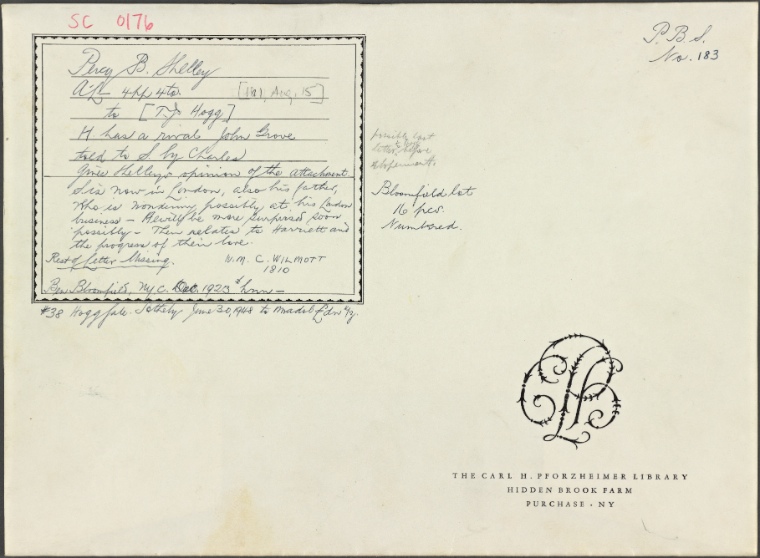 SC 0176
P. B. S.
No. 183
Percy B. Shelley
4pp 4to [1811, Aug, 15]
to [T. J. Hogg]
H has a rival John Grove
told to S by Charles
Gives Shelley's opinion of the attachment
S is now in London, also his father,
who is wondering possibly at his London
business – He will be more surprised soon
possibly – Then relates to Harriett and
the progress of their love.
Rest of letter missing. W. M. C. WILMOTT
1810
Bloomfield's, N.Y.C. 1923
#38 Hogg sale. Sotheby June 30, 1948 to
possibly last
letter before
elopement.
Bloomfield lot
16 pcs.
Numbered.
THE CARL H. PFORZHEIMER LIBRARY
HIDDEN BROOK FARM
PURCHASE · NY